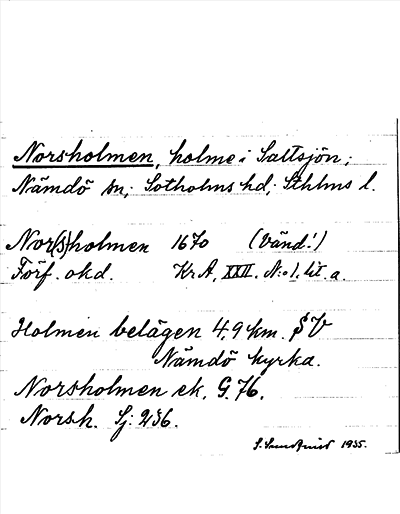 Norsholmen, holme i Saltsjön;
Nämdö sn; Sotholms hd; Sthlms l.
Nor(s)holmen 1670 (Vänd!)
Förf. okd. Kr A, XXII. N:o 1, lit. a.
Holmen belägen 4,9 km. SV
Nämdö kyrka.
Norsholmen ek. G. 76.
Norsh. Sj: 236.
1935.